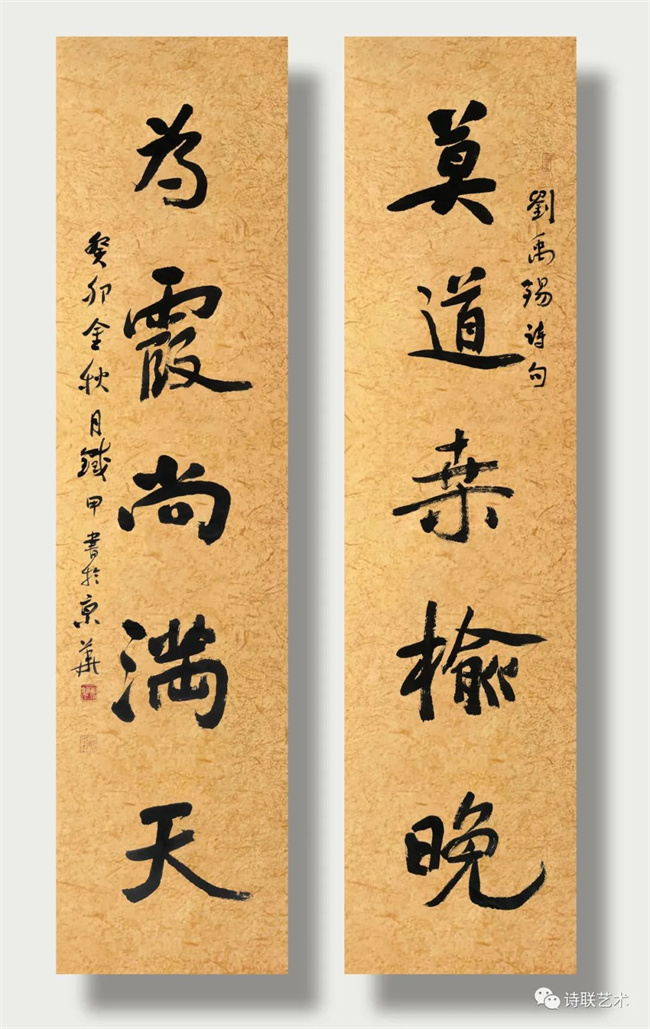 劉禹錫詩句
莫道桒榆晚
為霞尚满天
癸卯金秋月鐵甲書於京華
诗联艺术